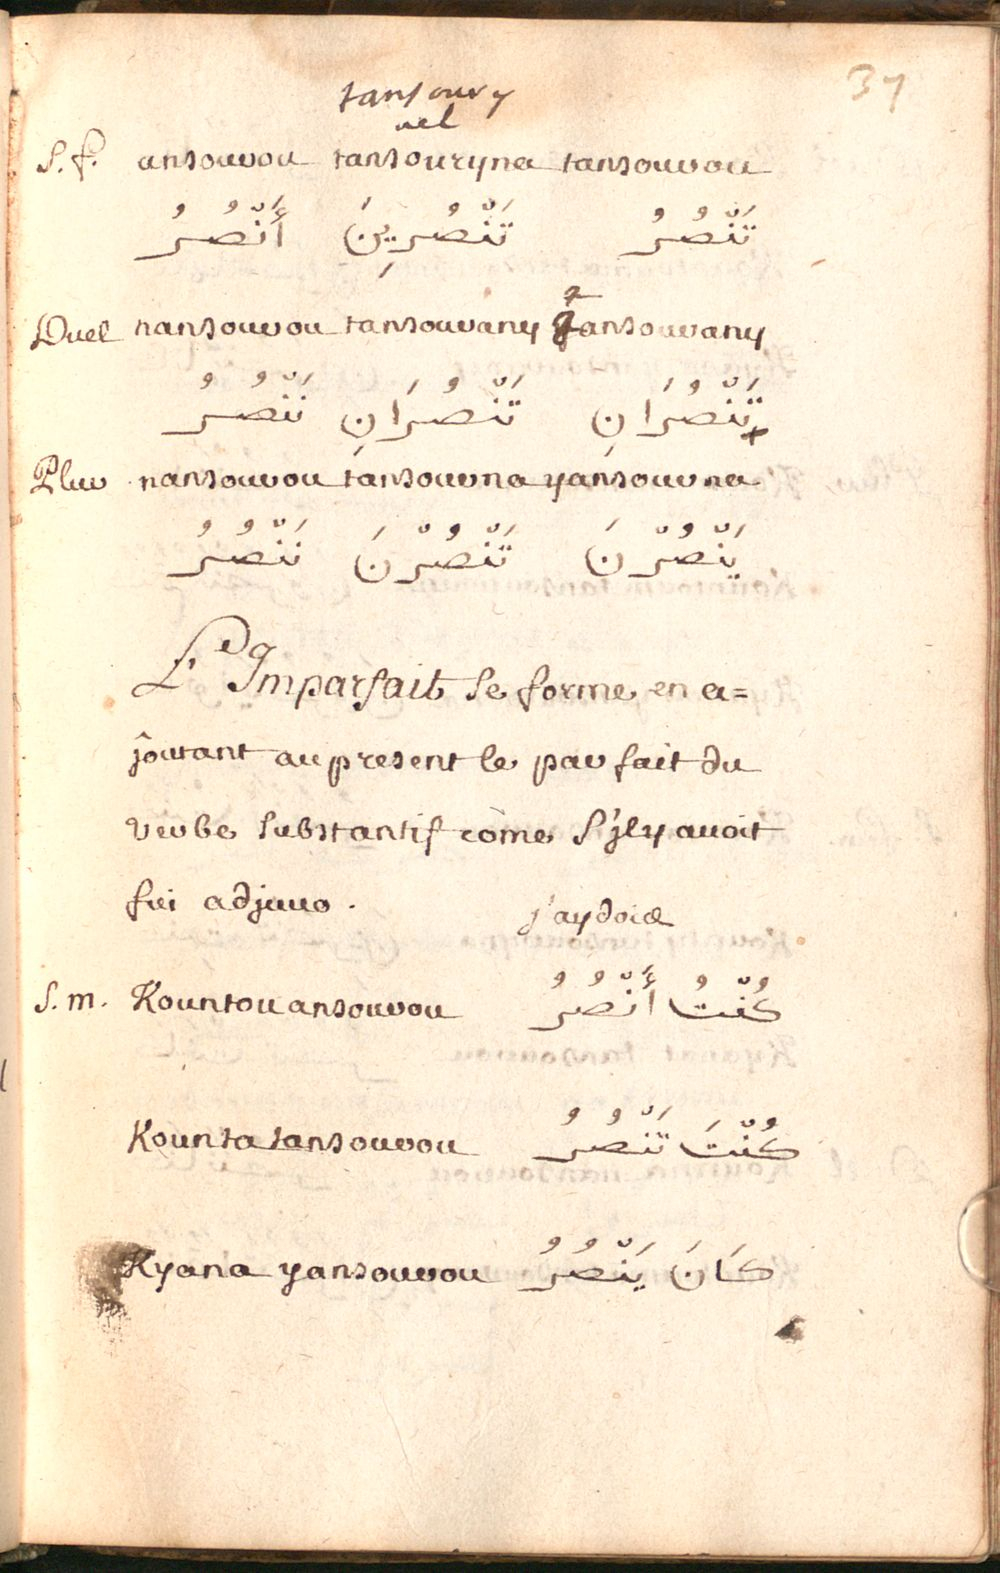 37
tansoury
vel
S. f. ansourou tansouryna tansourou
تَنْصُرُ تَنْصُرِينَ أَنْصُرُ
Duel nansourou tansourany tansourany
تَنْصُرَانِ تَنْصُرَانِ نَنْصُرُ
Plur nansourou tansourna yansourna
يَنْصُرْنَ تَنْصُرْنَ نَنْصُرُ
L'Imparfait se forme en a=
joutant au present le parfait du
verbe substantif côme s'jl y avoit
fui adjuvo.
j'aydois
S. m. Kountou ansourou كُنْتُ أَنْصُرُ
Kounta tansourou كُنْتَ تَنْصُرُ
Kyana yansourou كَانَ يَنْصُرُ